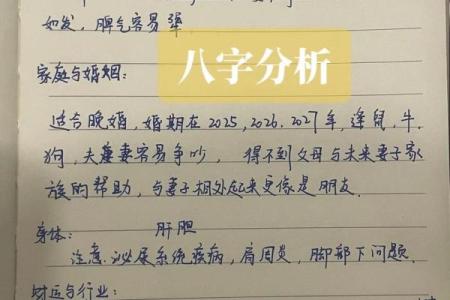 如发，脾气容易犟
家庭与婚姻：
八字分析
适合晚婚，婚期在2025，2026，2027年，逢鼠，牛，
狗，夫妻容易争吵，得不到父母与未来妻子家
族的帮助，与妻子相处起来更像是朋友．
身体： 肝胆
注意．泌尿系统疾病，肩周炎，脚部下问题．
财运与行业：